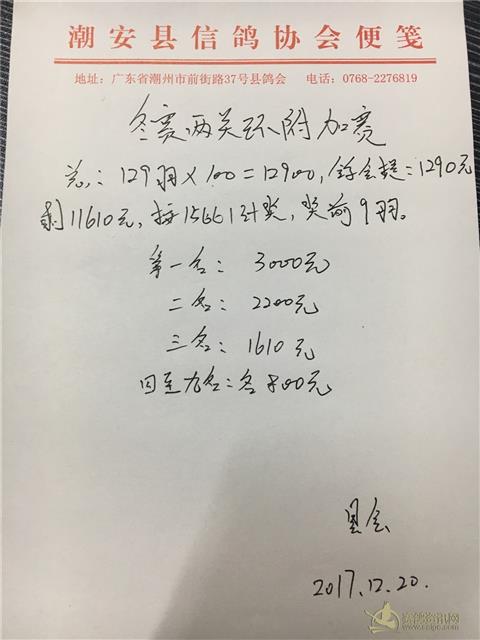 潮安县信鸽协会便笺
地址：广东省潮州市前街路37号县鸽会 电话：0768-2276819
冬赛两关环附加赛
总：129羽×100=12900，鸽会提：1290元
剩11610元，按15661计奖，奖前9羽。
第一名：3000元
二名：2200元
三名：1610元
四至九名：各800元
县会
2017.12.20.
赛鸽资讯网